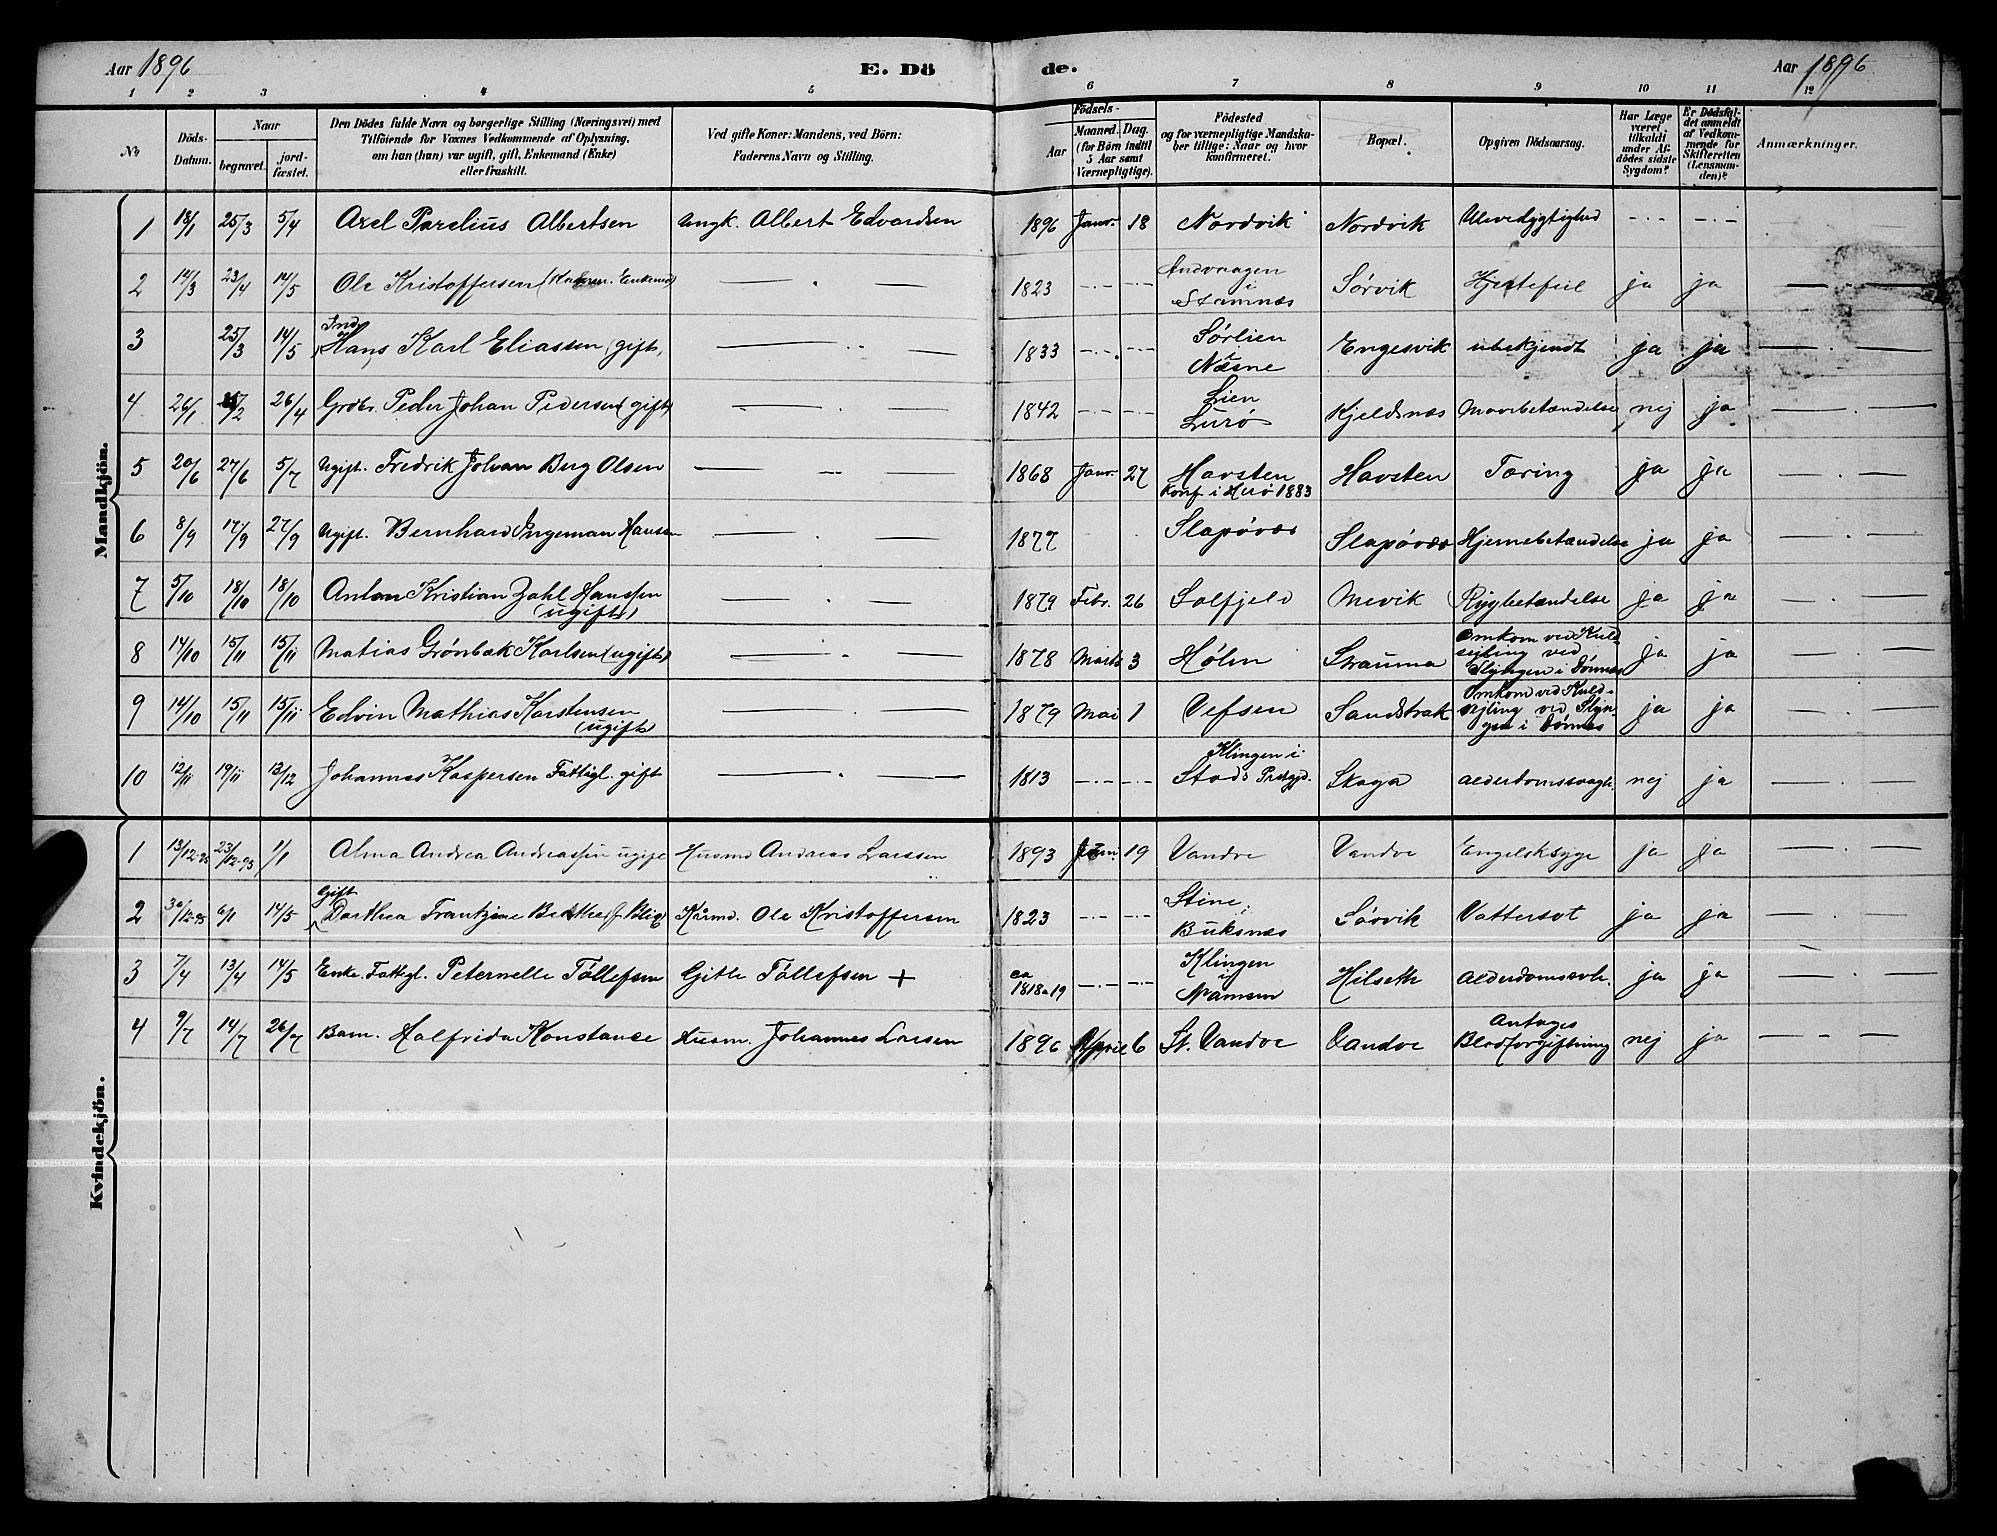 Aar 1896
E. Dö
de.
Aar 1896
1 2 3 4 5 6 7 8 9 10 11 12
No
Döds-Datum.
Naar
begravet.
jord-fæstet.
Den Dödes fulde Navn og borgerlige Stilling (Næringsvei) med
Tilföiende for Voxnes Vedkommende af Oplysning,
om han (hun) var ugift, gift, Enkemand (Enke)
eller fraskilt.
Ved gifte Koner: Mandens, ved Börn:
Faderens Navn og Stilling.
Födsels-
Aar
Maaned. Dag.
(for Börn indtil
5 Aar samt
Værnepligtige).
Födested
og for værnepligtige Mandska-
ber tillige: Naar og hvor
konfirmeret.
Bopæl.
Opgiven Dödsaarsag.
Har Læge
været
tilkaldt
under Af-
dödes sidste
Sygdom?
Er Dödsfal-
det anmeldt
af Vedkom-
mende for
Skifteretten
(Lensman-
den)?
Anmærkninger.
Mandkjön.
1 18/1 25/3 5/4 Axel Parelius Albertsen Ungk. Albert Edvardsen 1896 Janr. 18 Nordvik Nordvik Ulevedygtighed
2 14/3 23/4 14/5 Ole Kristoffersen Enkemd 1823 Andvaagen i Stamnæs Sørvik Hjertefeil ja ja
3 25/3 14/5 Ind. Hans Karl Eliassen (gift) 1833 Sørlien Næsne Engesvik ubekjendt ja ja
4 26/1 /2 26/4 Grdbr. Peder Johan Pedersen (gift) 1842 Lien Lurø Kjeldsnæs Mavebetændelse nej ja
5 20/6 27/6 5/7 Ugift. Fredrik Johan Berg Olsen 1868 Janr. 27 Havsten Konf. i Herø 1883 Havsten Tæring ja ja
6 8/9 17/9 27/9 Ugift. Bernhard Ingeman Hansen 1877 Slapøvær Slapøvær Hjernebetændelse ja ja
7 5/10 18/10 18/10 Anton Kristian Zahl Hanssen (ugift) 1879 Febr. 26 Solfjeld Mevik Rygbetændelse ja ja
8 14/10 15/11 15/11 Matias Grønbæk Karlsen (ugift) 1878 Marts 3 Hølen Strauma Omkom ved Kuldsejling ved Slyngen i Dønnes ja ja
9 14/10 15/11 15/11 Edvin Mathias Karstensen (ugift) 1879 Mai 1 Vefsen Sandstrak Omkom ved Kuldsejling ved Slyngen i Dønnes ja ja
10 12/11 19/11 13/12 Johannes Kaspersen Fattigl. gift 1813 Klingen i Stods Prstgjd. Skaga Alderdomssvagh. nej ja
Kvindekjön.
1 13/12-95 23/12-95 1/1 Alma Andrea Andreassen ugift Husmd Andreas Larssen 1893 Juni 19 Vandve Vandve Engelsksyge ja ja
2 30/12-95 6/1 14/5 Gift Dorthea Frantzine f. Blix Kårmd. Ole Kristoffersen 1823 Stine, Buksnæs Sørvik Vattersot ja ja
3 7/4 13/4 14/5 Enke. Fattigl. Peternelle Tøllefsen Gitle Tøllefsen + ca 1818 a 19 Klingen i Namsen Hilseth Alderdomssvh. ja ja
4 9/7 14/7 26/7 Barn. Halfrida Konstance Husm. Johannes Larsen 1896 April 6 St. Vandve Vandve Antages Blodforgiftning nej ja